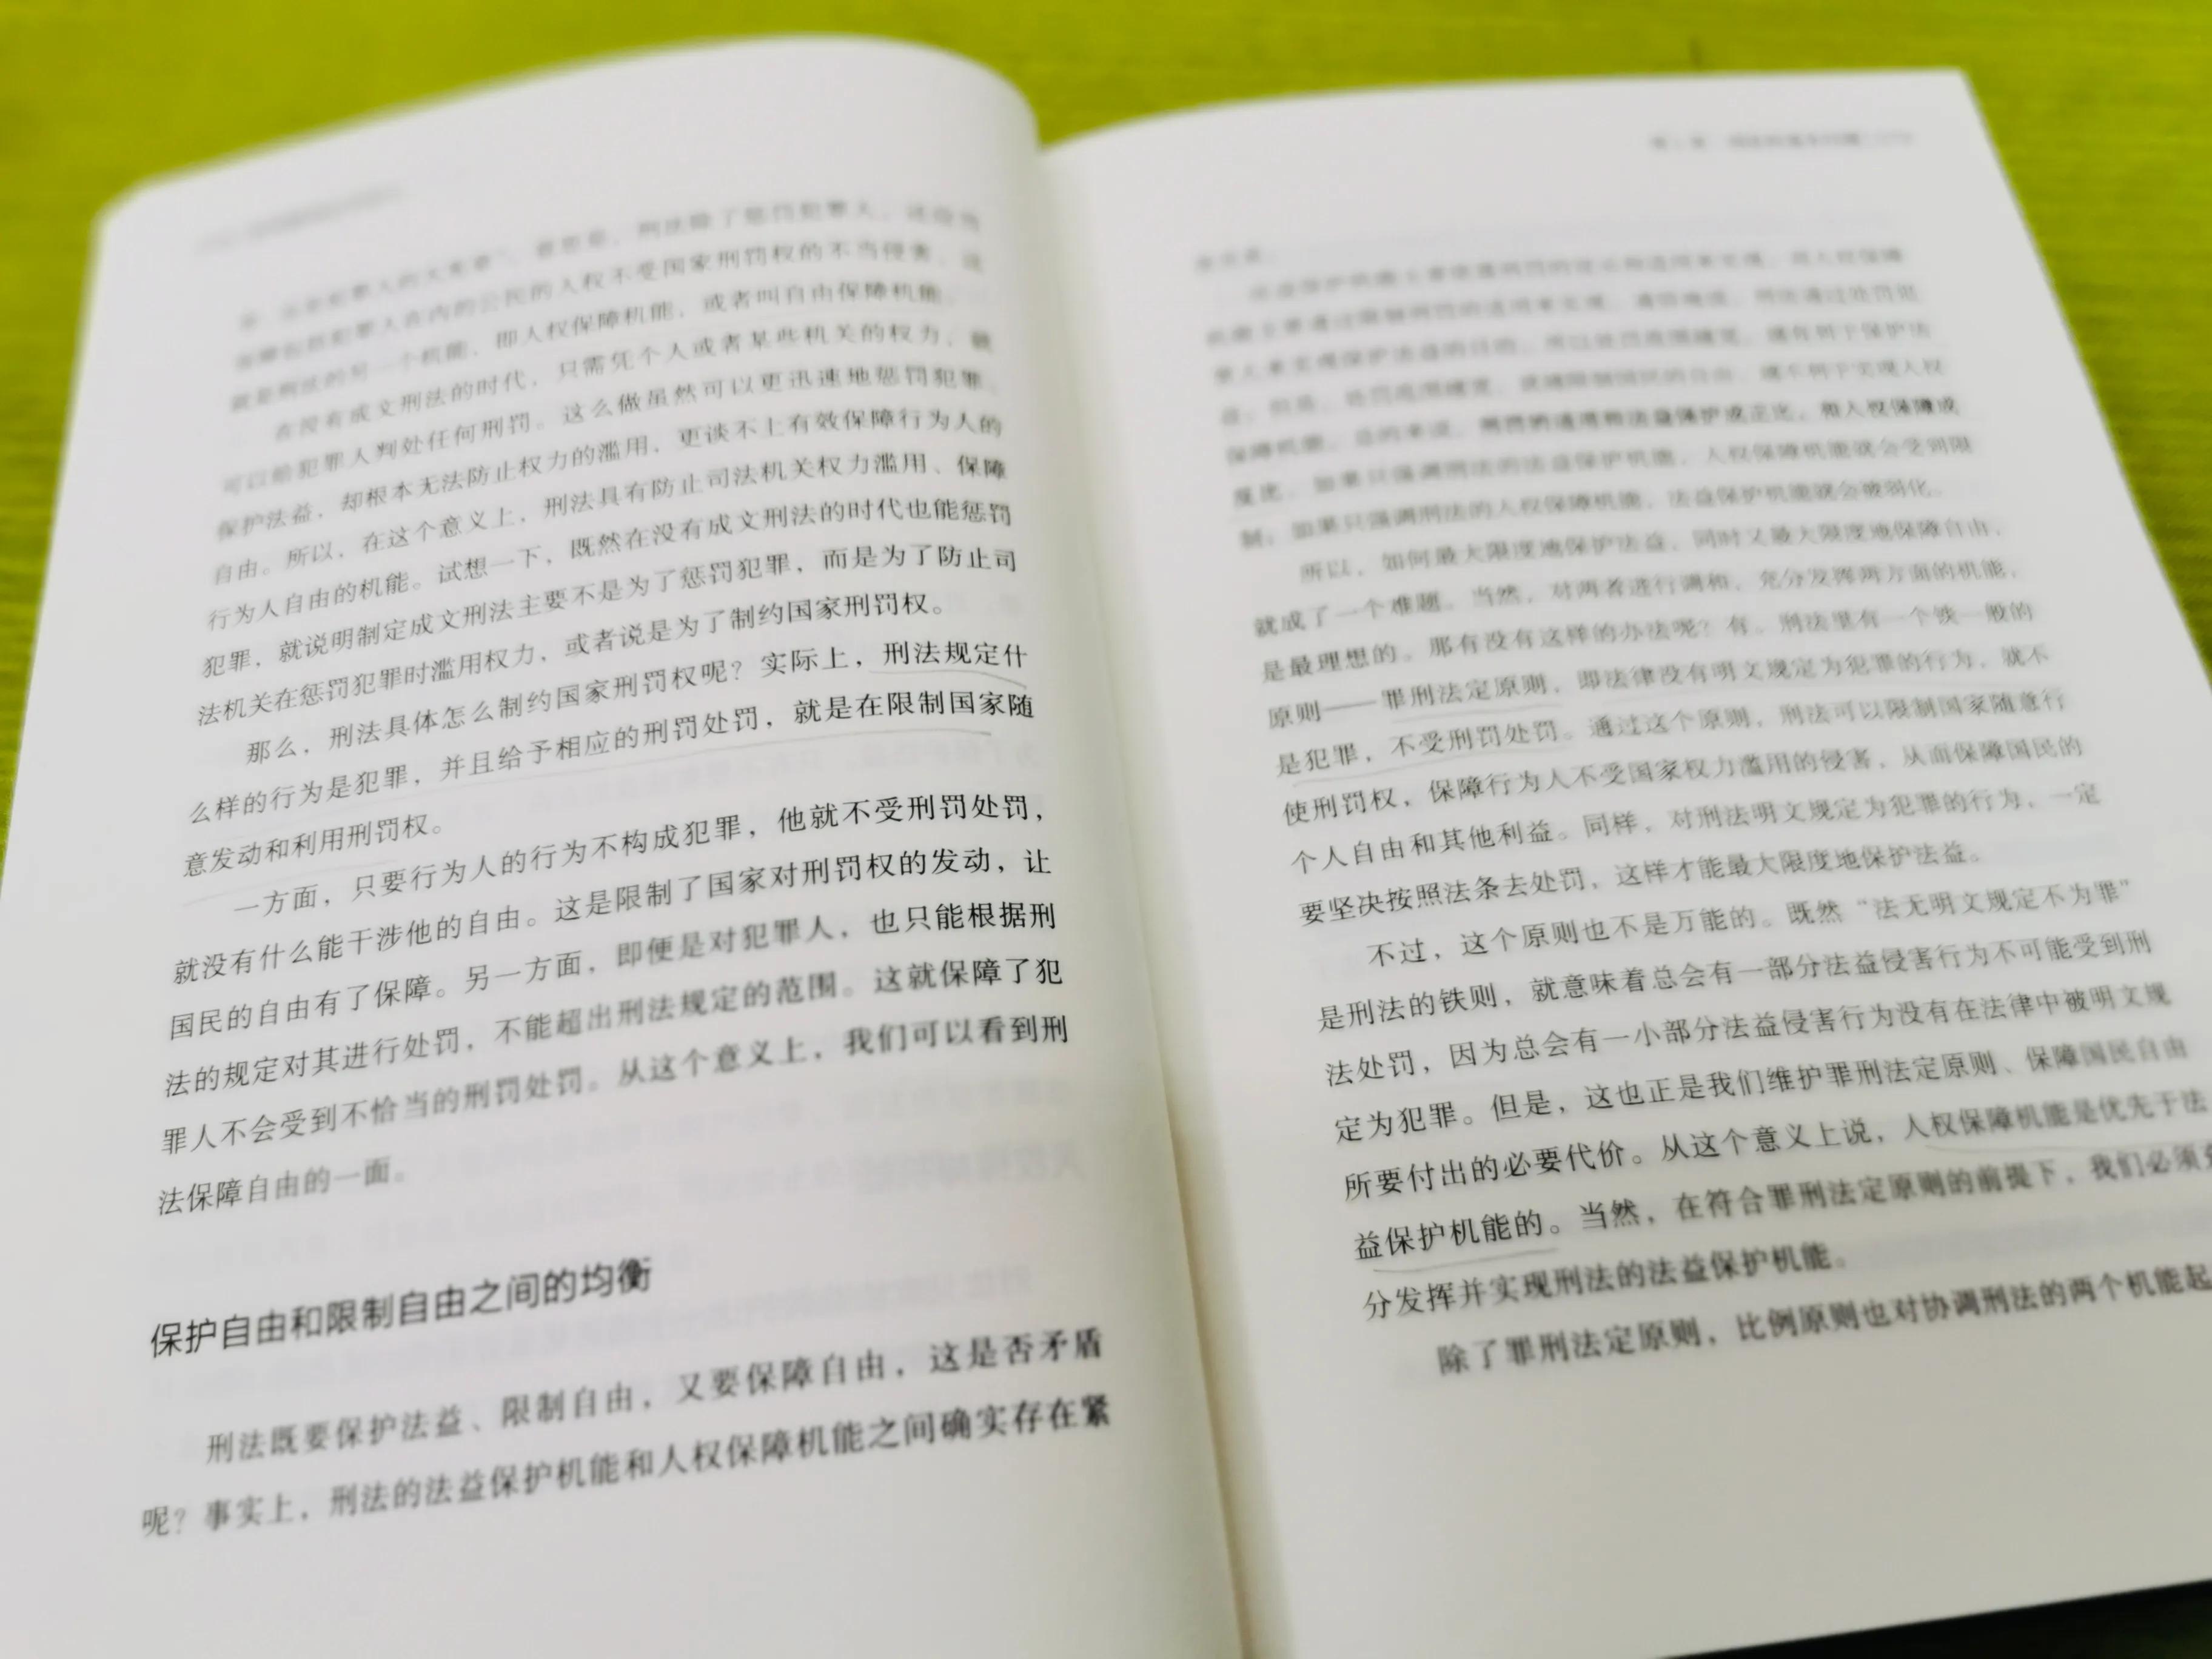 保障包括犯罪人在内的公民的人权不受国家刑罚权的不当侵害。这
就是刑法的另一个机能,即人权保障机能,或者叫自由保障机能。
在没有成文刑法的时代,只需凭个人或者某些机关的权力,就
可以给犯罪人判处任何刑罚。这么做虽然可以更迅速地惩罚犯罪、
保护法益,却根本无法防止权力的滥用,更谈不上有效保障行为人的
自由。所以,在这个意义上,刑法具有防止司法机关权力滥用、保障
行为人自由的机能。试想一下,既然在没有成文刑法的时代也能惩罚
犯罪,就说明制定成文刑法主要不是为了惩罚犯罪,而是为了防止司
法机关在惩罚犯罪时滥用权力,或者说是为了制约国家刑罚权。
那么,刑法具体怎么制约国家刑罚权呢?实际上,刑法规定什
么样的行为是犯罪,并且给予相应的刑罚处罚,就是在限制国家随
意发动和利用刑罚权。
一方面,只要行为人的行为不构成犯罪,他就不受刑罚处罚,
就没有什么能干涉他的自由。这是限制了国家对刑罚权的发动,让
国民的自由有了保障。另一方面,即便是对犯罪人,也只能根据刑
法的规定对其进行处罚,不能超出刑法规定的范围。这就保障了犯
罪人不会受到不恰当的刑罚处罚。从这个意义上,我们可以看到刑
法保障自由的一面。
保护自由和限制自由之间的均衡
刑法既要保护法益、限制自由,又要保障自由,这是否矛盾
呢?事实上,刑法的法益保护机能和人权保障机能之间确实存在紧
保障机能。总的来说,刑罚的适用和法益保护成正比,和人权保障成
反比。如果只强调刑法的法益保护机能,人权保障机能就会受到限
制;如果只强调刑法的人权保障机能,法益保护机能就会被弱化。
所以,如何最大限度地保护法益,同时又最大限度地保障自由,
就成了一个难题。当然,对两者进行调和,充分发挥两方面的机能,
是最理想的。那有没有这样的办法呢?有。刑法里有一个铁一般的
原则——罪刑法定原则,即法律没有明文规定为犯罪的行为,就不
是犯罪,不受刑罚处罚。通过这个原则,刑法可以限制国家随意行
使刑罚权,保障行为人不受国家权力滥用的侵害,从而保障国民的
个人自由和其他利益。同样,对刑法明文规定为犯罪的行为,一定
要坚决按照法条去处罚,这样才能最大限度地保护法益。
不过,这个原则也不是万能的。既然“法无明文规定不为罪”
是刑法的铁则,就意味着总会有一部分法益侵害行为不可能受到刑
法处罚,因为总会有一小部分法益侵害行为没有在法律中被明文规
定为犯罪。但是,这也正是我们维护罪刑法定原则、保障国民自由
所要付出的必要代价。从这个意义上说,人权保障机能是优先于法
益保护机能的。当然,在符合罪刑法定原则的前提下,我们必须充
分发挥并实现刑法的法益保护机能。
除了罪刑法定原则,比例原则也对协调刑法的两个机能起